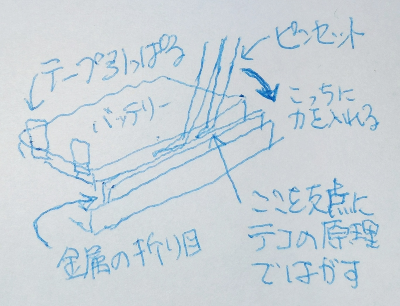 ピンセット
テープ引っぱる
こっちに
力を入れる
バッテリー
ここを支点に
テコの原理
ではがす
金属の折り目